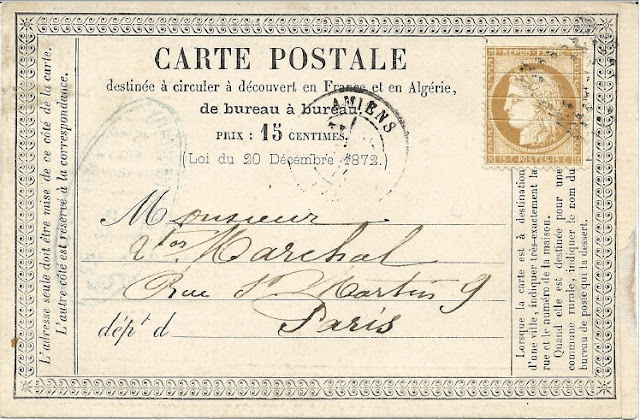 CARTE POSTALE
destinée à circuler à découvert en France et en Algérie,
de bureau à bureau.
PRIX : 15 CENTIMES.
(Loi du 20 Décembre 1872.)
AMIENS
REPUB FRANC
15 C POSTES 15 C
Monsieur
Marchal
Rue St Martin 9
dépt d
Paris
L'adresse seule doit être mise de ce côté de la carte.
L'autre côté est réservé à la correspondance.
Lorsque la carte est à destination
d'une ville, indiquer très-exactement la
rue et le numéro de la maison.
Quand elle est destinée pour une
commune rurale, indiquer le nom du
bureau de poste qui la dessert.